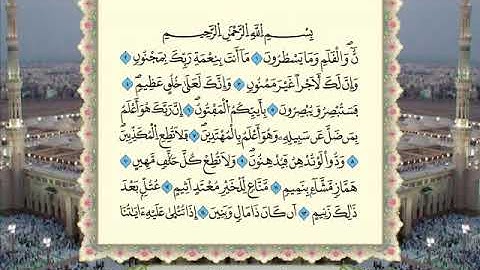 بِسْمِ اللَّهِ الرَّحْمَٰنِ الرَّحِيمِ
نٓ ۚ وَالْقَلَمِ وَمَا يَسْطُرُونَ ١ مَا أَنتَ بِنِعْمَةِ رَبِّكَ بِمَجْنُونٍ ٢
وَإِنَّ لَكَ لَأَجْرًا غَيْرَ مَمْنُونٍ ٣ وَإِنَّكَ لَعَلَىٰ خُلُقٍ عَظِيمٍ ٤
فَسَتُبْصِرُ وَيُبْصِرُونَ ٥ بِأَييِّكُمُ الْمَفْتُونُ ٦ إِنَّ رَبَّكَ هُوَ أَعْلَمُ
بِمَن ضَلَّ عَن سَبِيلِهِ وَهُوَ أَعْلَمُ بِالْمُهْتَدِينَ ٧ فَلَا تُطِعِ الْمُكَذِّبِينَ
٨ وَدُّوا لَوْ تُدْهِنُ فَيُدْهِنُونَ ٩ وَلَا تُطِعْ كُلَّ حَلَّافٍ مَّهِينٍ
١٠ هَمَّازٍ مَّشَّاءٍ بِنَمِيمٍ ١١ مَّنَّاعٍ لِّلْخَيْرِ مُعْتَدٍ أَثِيمٍ ١٢ عُتُلٍّ بَعْدَ
ذَٰلِكَ زَنِيمٍ ١٣ أَن كَانَ ذَا مَالٍ وَبَنِينَ ١٤ إِذَا تُتْلَىٰ عَلَيْهِ آيَاتُنَا